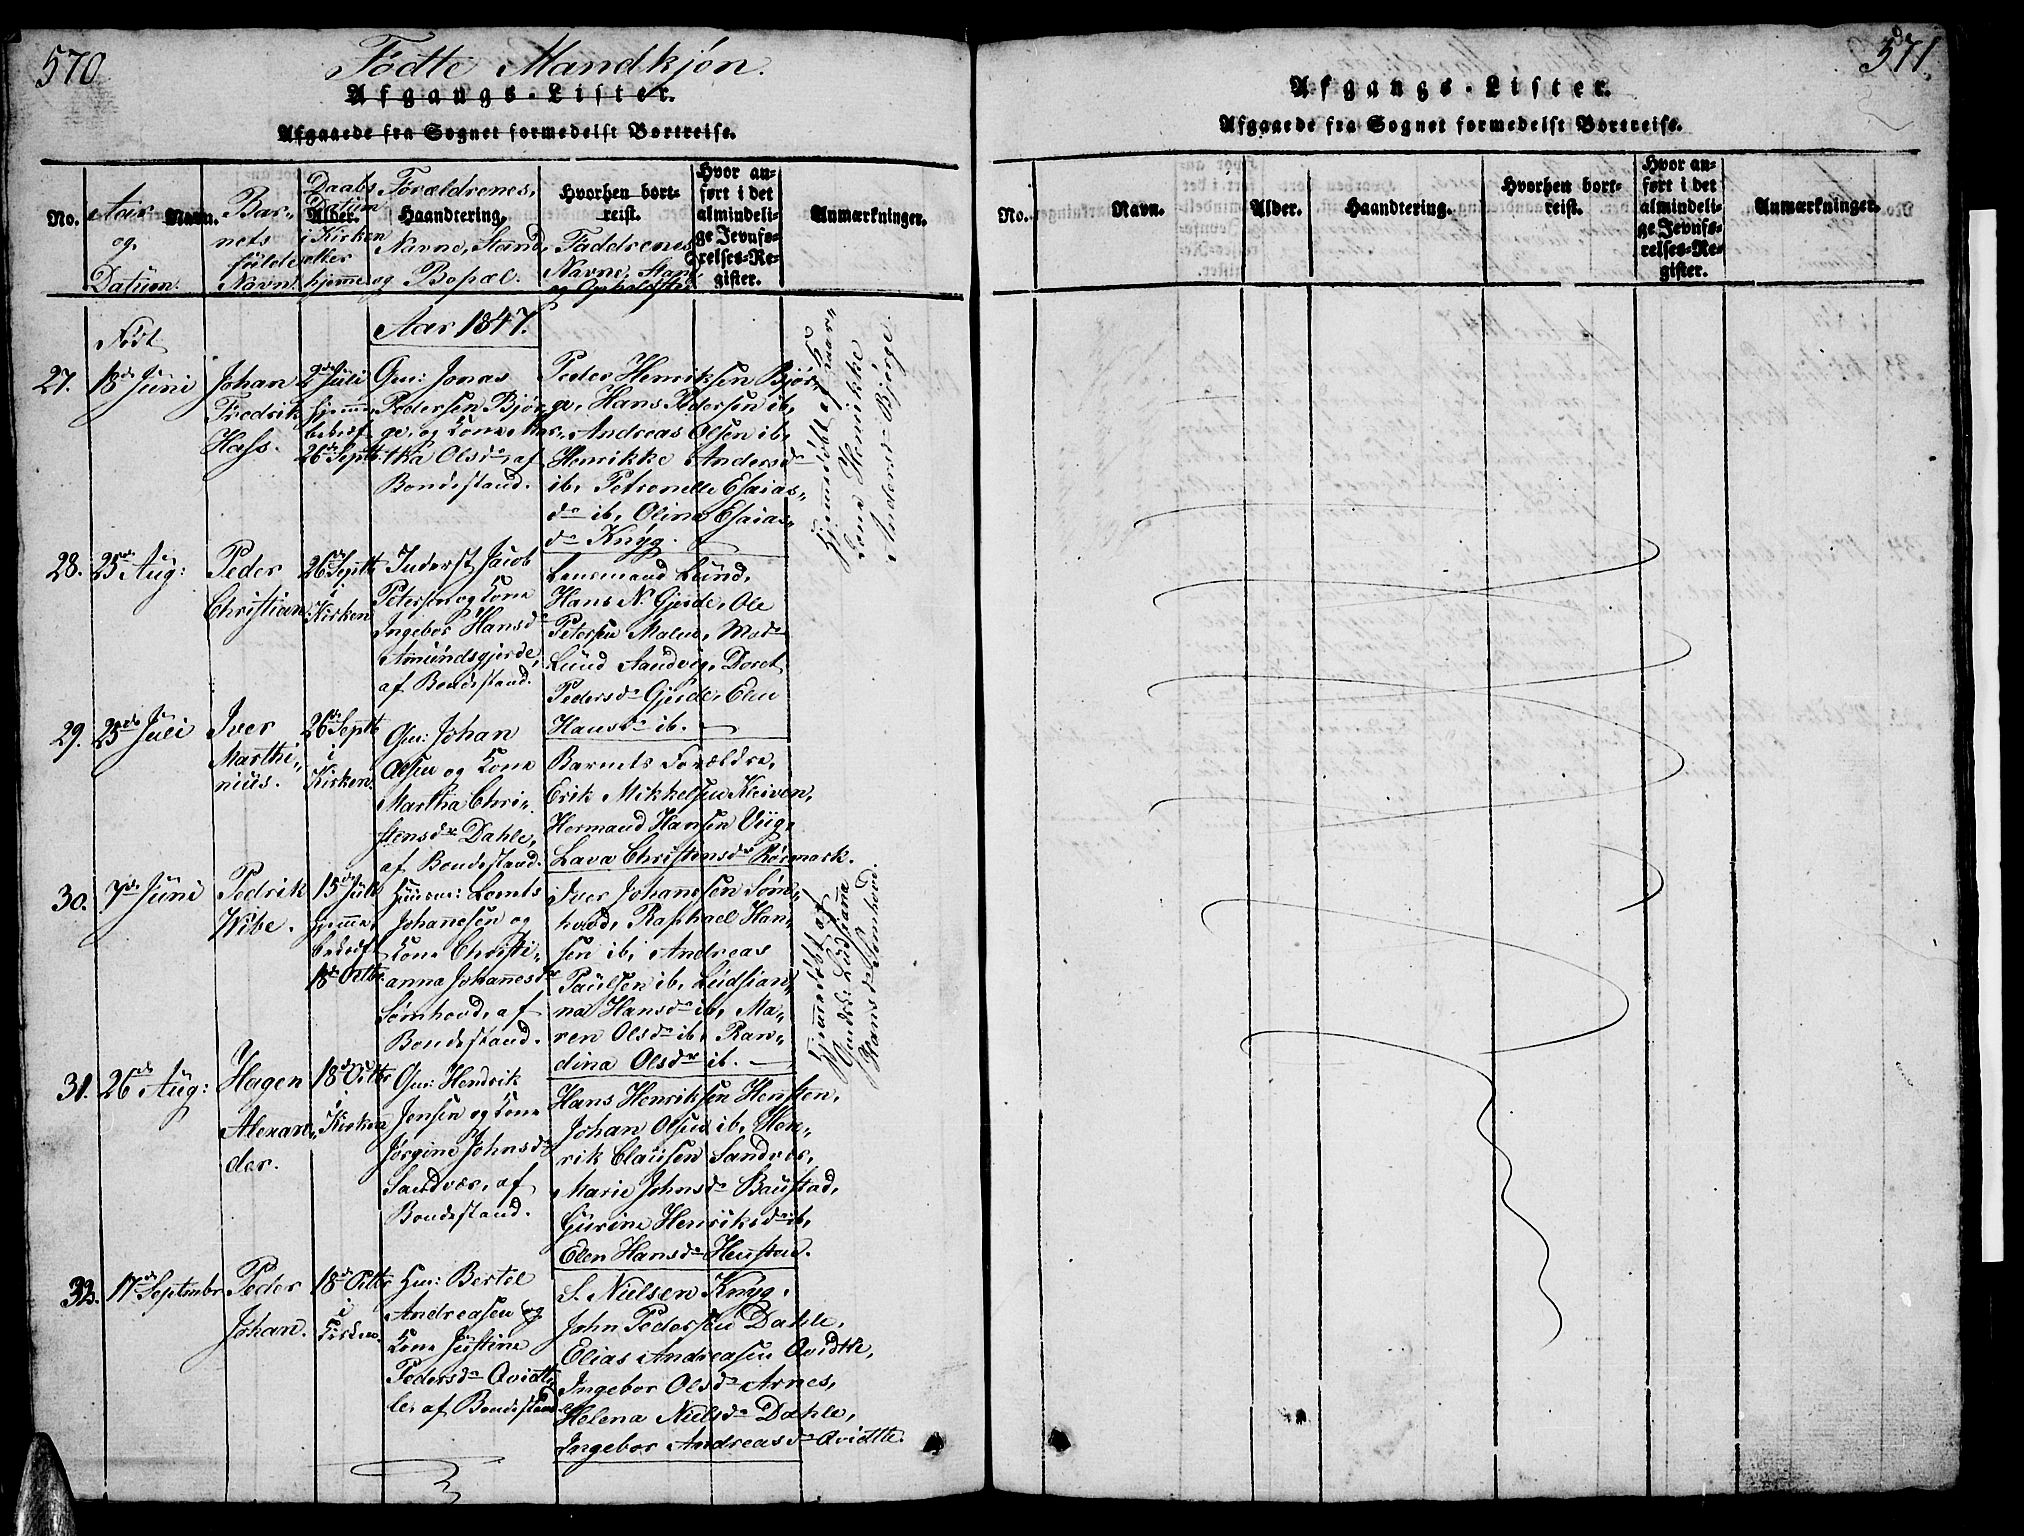 570
Fødte Mandkjøn.
Afgangs-Lister.
Afgaaede fra Sognet formedelst Bortreise.
No.
Aar og Datum.
Navn.
Barnets fulde Navn.
Alder.
Daabs Datum i Kirken eller hjemme
Haandtering.
Forældrenes Navne, Stand og Bopæl.
Hvorhen bortreist.
Faddrenes Navne, Stand og Opholdsted
Hvor anført i det almindelige Jevnførelses-Register.
Anmærkninger.
Født
Aar 1847.
27. 18de Juni
Johan
Fredrik
Hass.
2den Juli
hjemme,
bekræf.
26de Septbr
Gm: Jonas
Pedersen Bjør-
ge, og Kone Mar-
tha Olsdr, af
Bondestand.
Peder Henriksen Bjør-
ge, Hans Pedersen ib,
Andreas Olsen ib,
Henrikke Andersdr
ib, Petronelle Esaias-
dr ib, Olina Esaias-
dr Knyg.
Hjemmedøbt af Gaar-
Kone Henrikke
Andersdr Bjørge.
28. 25de Aug:
Peder
Christian.
26de Septbr
i
Kirken
Inderst Jacob
Petersen og Kone
Ingebor Hansdr
Amundsgjerde,
af Bondestand.
Lensmand Lund,
Hans N. Gjerde, Ole
Petersen Malen, Mad.
Lund Sandvig, Doret
Pedersdr Gjerde, Elen
Hansdr ib.
29. 25de Juli
Iver
Marthi-
nius.
26de Septbr
i
Kirken.
Gm: Johan
Olsen og Kone
Martha Chri-
stensdr Dahle,
af Bondestand.
Barnets Forældre,
Erik Mikkelsen Kleiven,
Hermand Hansen Viig,
Lava Christensdr Rørmark.
30. 7de Juni
Pedrik
Wibe.
15de Juli
hjemme,
bekræf.
18de Octbr
Huusm: Lornts
Johannesen og
Kone Christi-
anna Johannesdr
Sømhovd, af
Bondestand.
Iver Johannesen Søm-
hovd, Raphael Han-
sen ib, Andreas
Paulsen ib, Ludsian-
na Hansdr ib, Ma-
ren Olsdr ib, Ran-
dina Olsdr ib.
Hjemmedøbt af
Ludsianna
Hansdr Sømhovd.
31. 26de Aug:
Hagen
Alexan-
der.
18de Octbr
i
Kirken
Gm: Hendrik
Jensen og Kone
Jørgine Johnsdr
Sandvær, af
Bondestand.
Hans Henriksen Heysten,
Johan Olsen ib, Hen-
rik Clausen Sandvær,
Marie Johnsdr Baustad,
Gurine Henriksdr ib,
Elen Hansdr Heystad.
32. 17de Septmbr
Peder
Johan.
18de Octbr
i
Kirken.
Hm: Bertel
Andreasen og
Kone Justine
Pedersdr Qvidt-
le, af Bondestand
S. Nielsen Knyg,
John Pedersen Dahle,
Elias Andreasen Qvidtle,
Ingebor Olsdr Arnes,
Helena Nielsdr Dahle,
Ingebor Andreasdr Qvidtle.
571.
Afgangs-Lister.
Afgaaede fra Sognet formedelst Bortreise.
No.
Navn.
Alder.
Haandtering.
Hvorhen bortreist.
Hvor anført i det almindelige Jevnførelses-Register.
Anmærkninger.